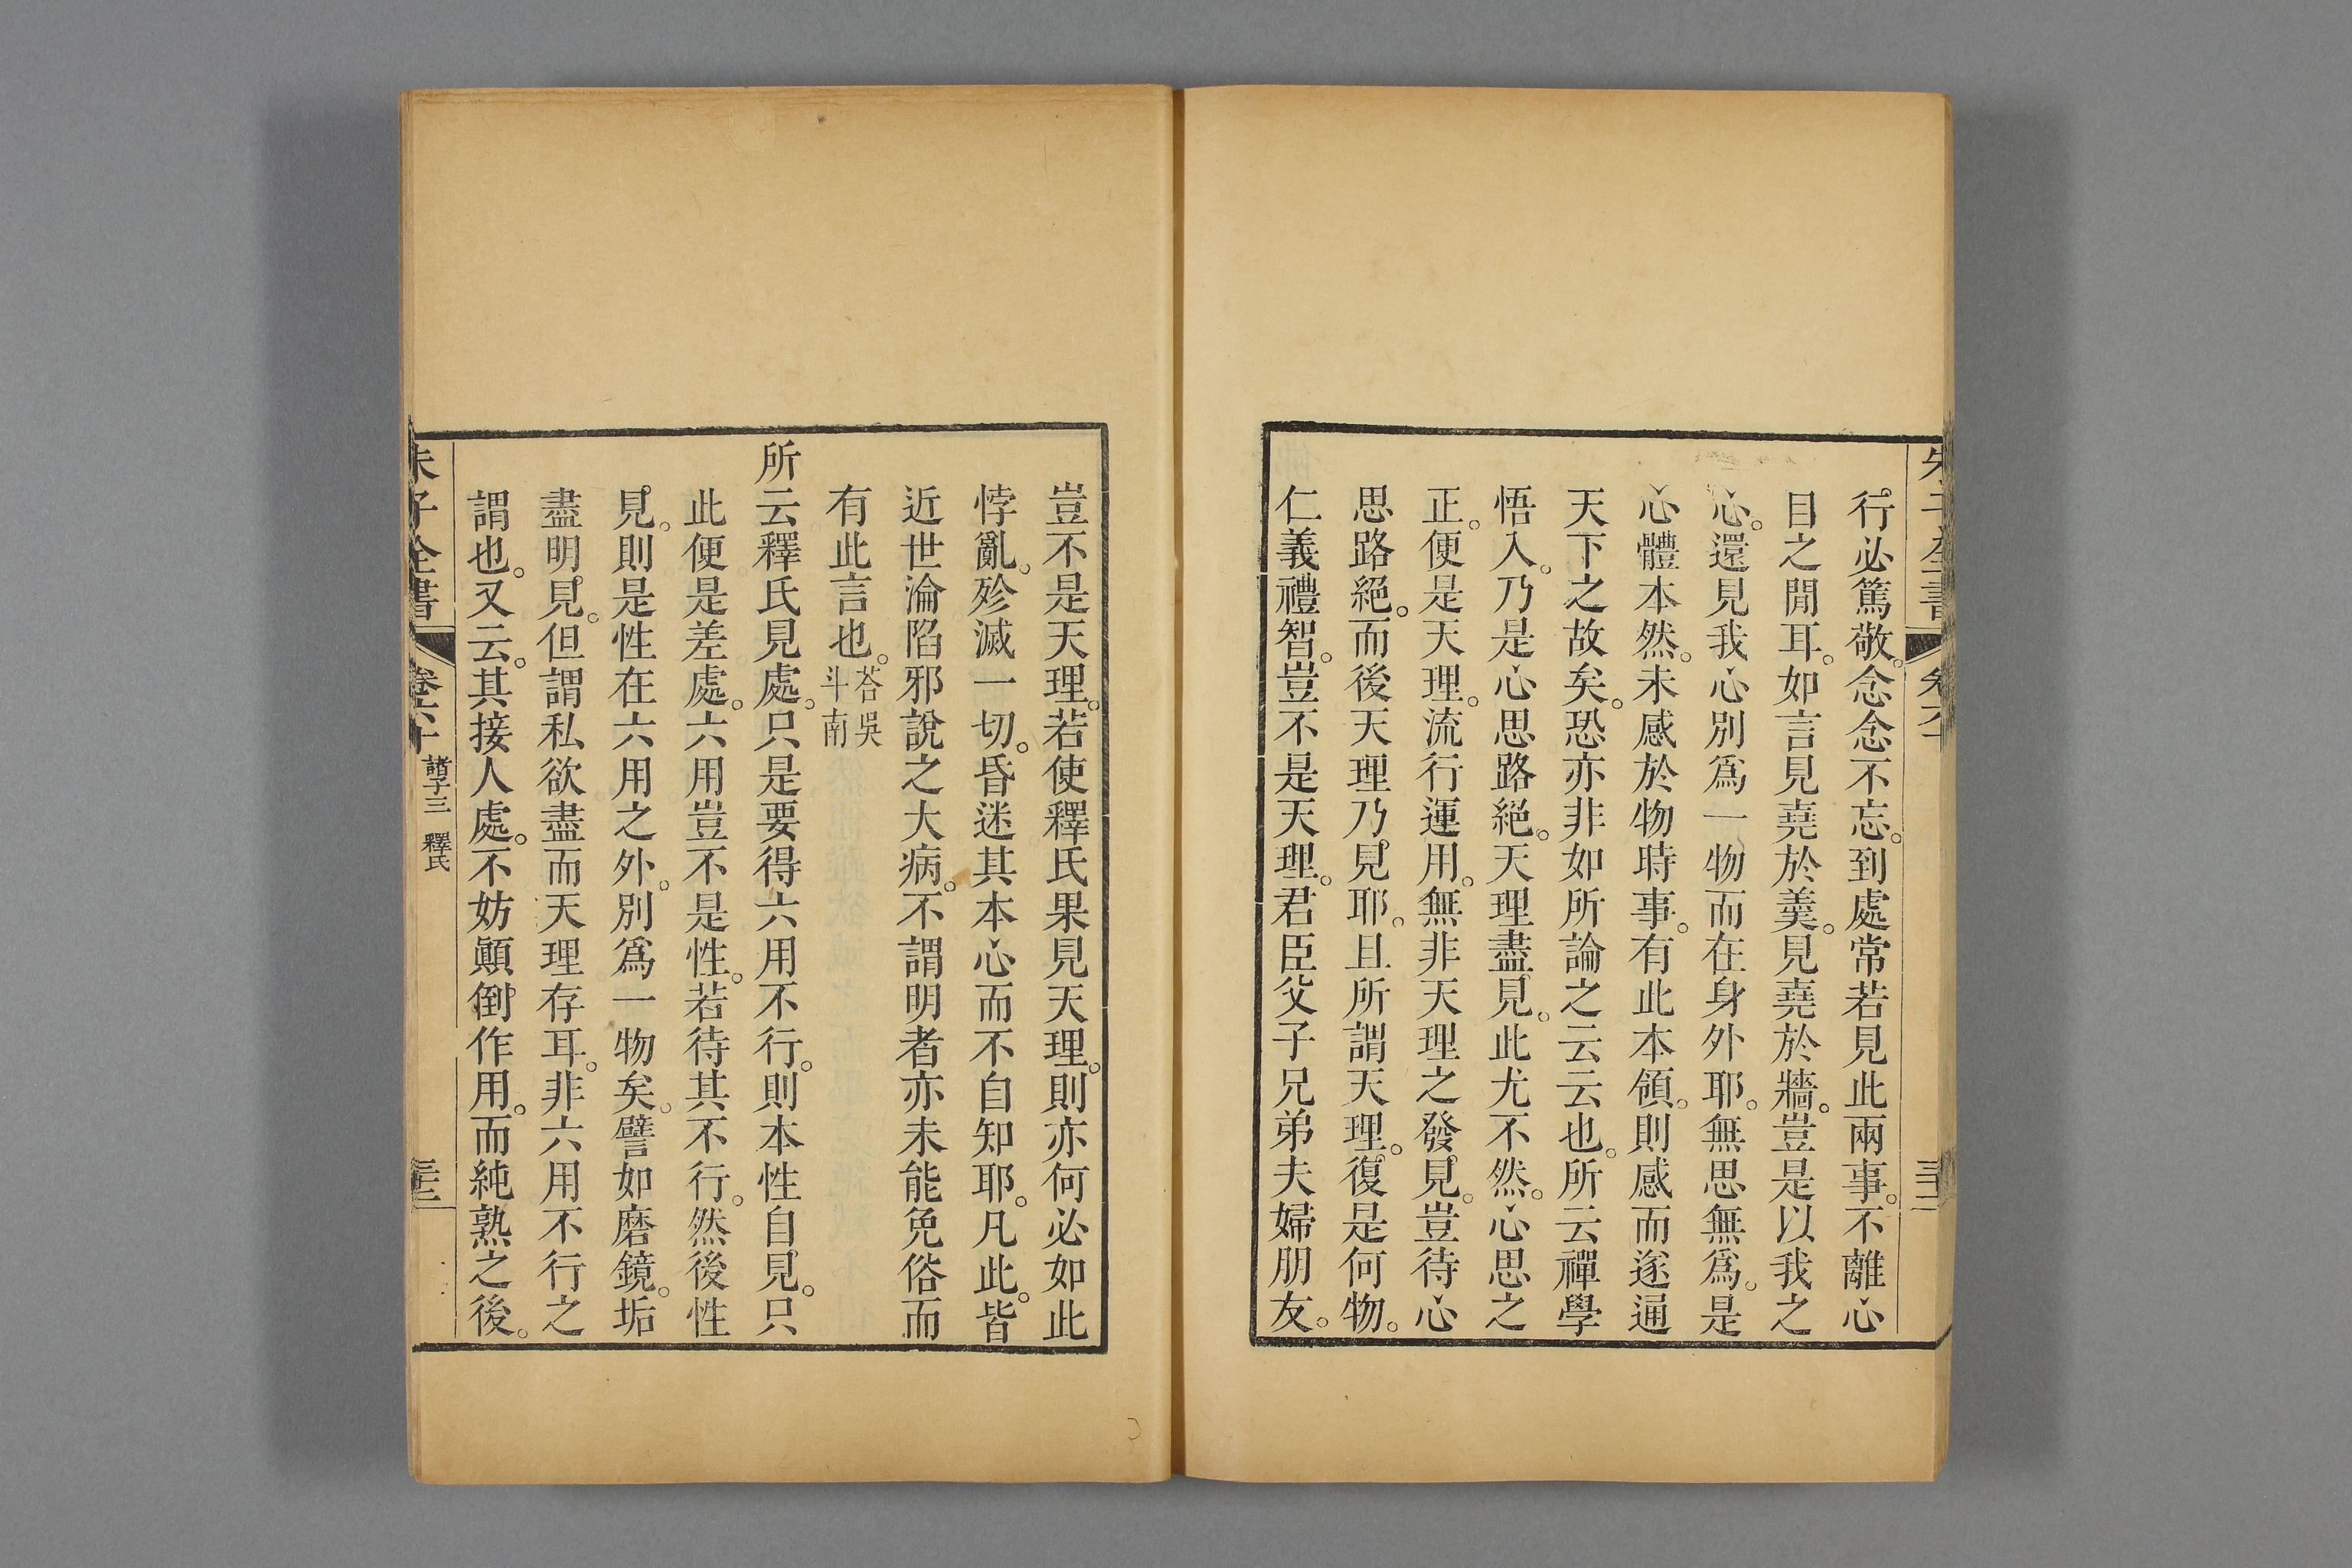 行必篤敬。念念不忘。到處常若見此兩事。不離心
目之閒耳。如言見堯於羹。見堯於牆。豈是以我之
心。還見我心別爲一物而在身外耶。無思無爲。是
心體本然。未感於物時事。有此本領。則感而遂通
天下之故矣。恐亦非如所論之云云也。所云禪學
悟入。乃是心思路絕。天理盡見。此尤不然。心思之
正。便是天理。流行運用。無非天理之發見。豈待心
思路絕。而後天理乃見耶。且所謂天理。復是何物。
仁義禮智。豈不是天理。君臣父子兄弟夫婦朋友。
豈不是天理。若使釋氏果見天理。則亦何必如此
悖亂。殄滅一切。昏迷其本心而不自知耶。凡此。皆
近世淪陷邪說之大病。不謂明者亦未能免俗而
有此言也。荅吳
斗南
所云釋氏見處。只是要得六用不行。則本性自見。只
此便是差處。六用豈不是性。若待其不行。然後性
見。則是性在六用之外。別爲一物矣。譬如磨鏡。垢
盡明見。但謂私欲盡而天理存耳。非六用不行之
謂也。又云。其接人處。不妨顚倒作用。而純熟之後。
朱子全書
卷六十
諸子三 釋氏